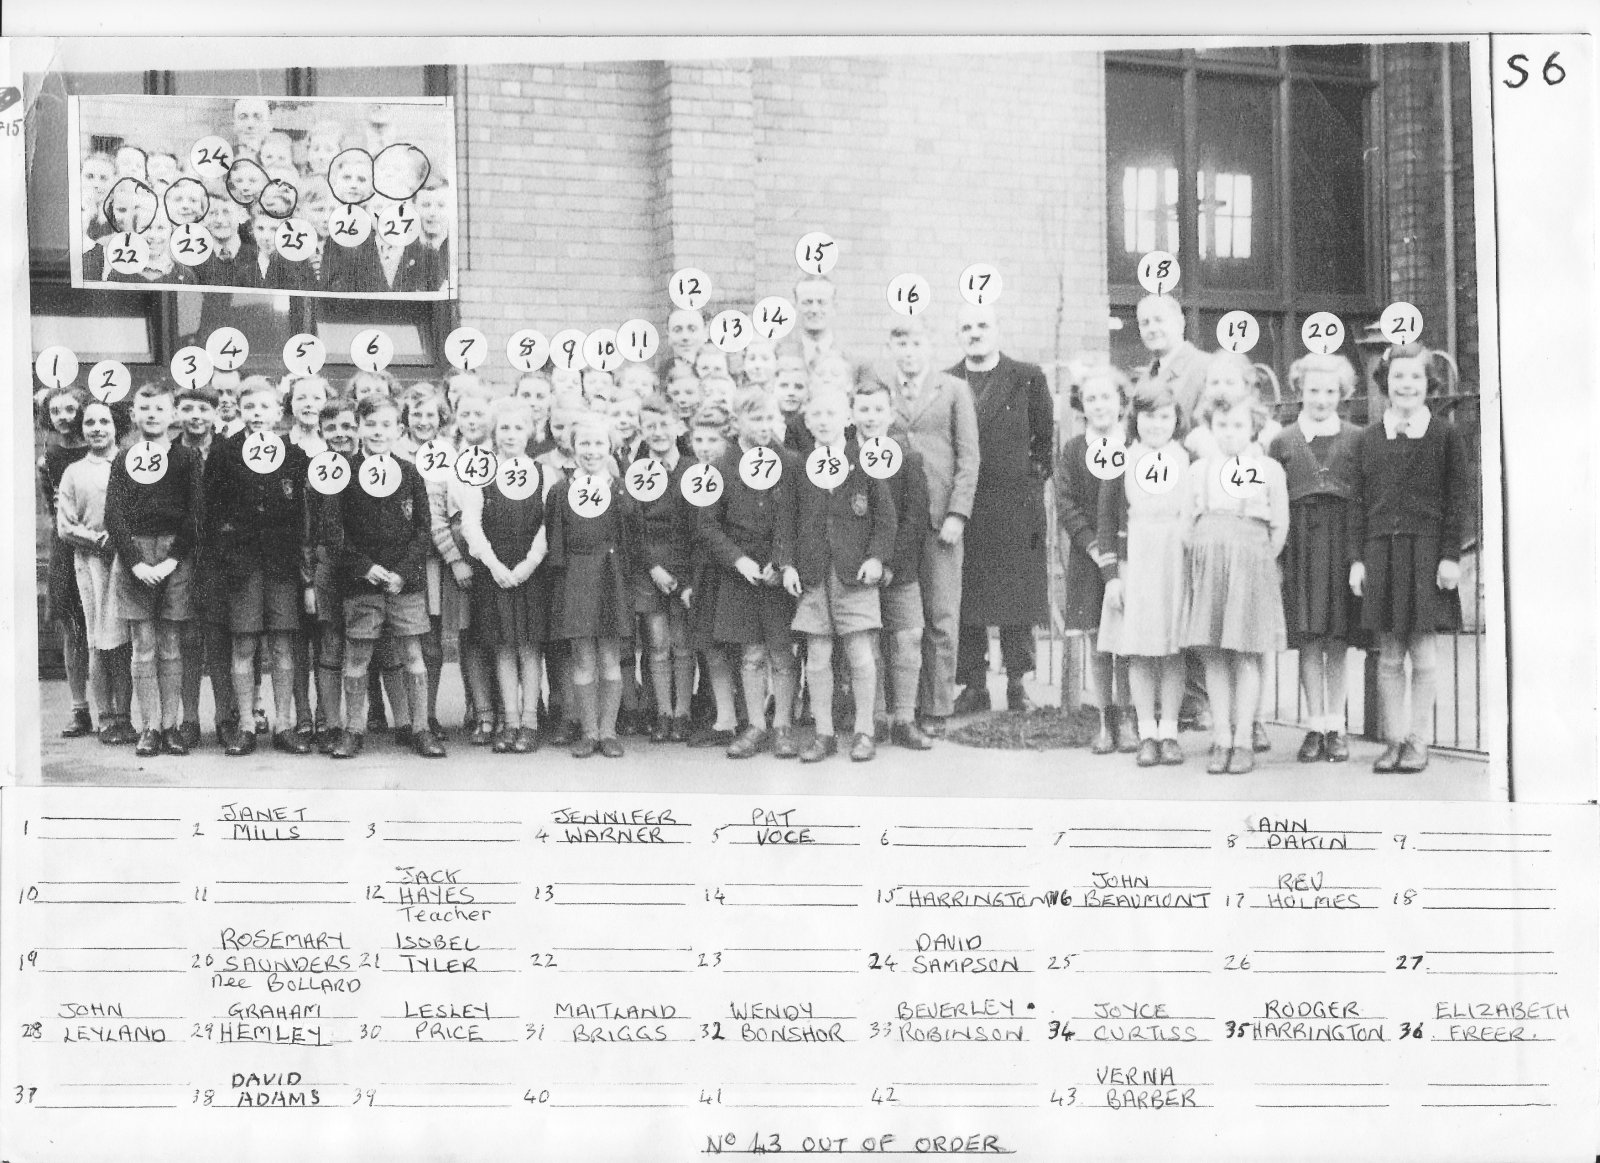 S 6
15
24
22 23 25 26 27
1 2 3 4 5 6 7 8 9 10 11 12 13 14 15 16 17 18 19 20 21
28 29 30 31 32 43 33 34 35 36 37 38 39 40 41 42
1
2 JANET MILLS
3
4 JENNIFER WARNER
5 PAT VOCE
6
7
8 ANN DAKIN
9
10
11
12 JACK HAYES Teacher
13
14
15 HARRINGTON
16 JOHN BEAUMONT
17 REV HOLMES
18
19
20 ROSEMARY SAUNDERS nee BOLLARD
21 ISOBEL TYLER
22
23
24 DAVID SAMPSON
25
26
27
28 JOHN LEYLAND
29 GRAHAM HEMLEY
30 LESLEY PRICE
31 MAITLAND BRIGGS
32 WENDY BONSHOR
33 BEVERLEY ROBINSON
34 JOYCE CURTISS
35 RODGER HARRINGTON
36 ELIZABETH FREER.
37
38 DAVID ADAMS
39
40
41
42
43 VERNA BARBER
No 43 OUT OF ORDER